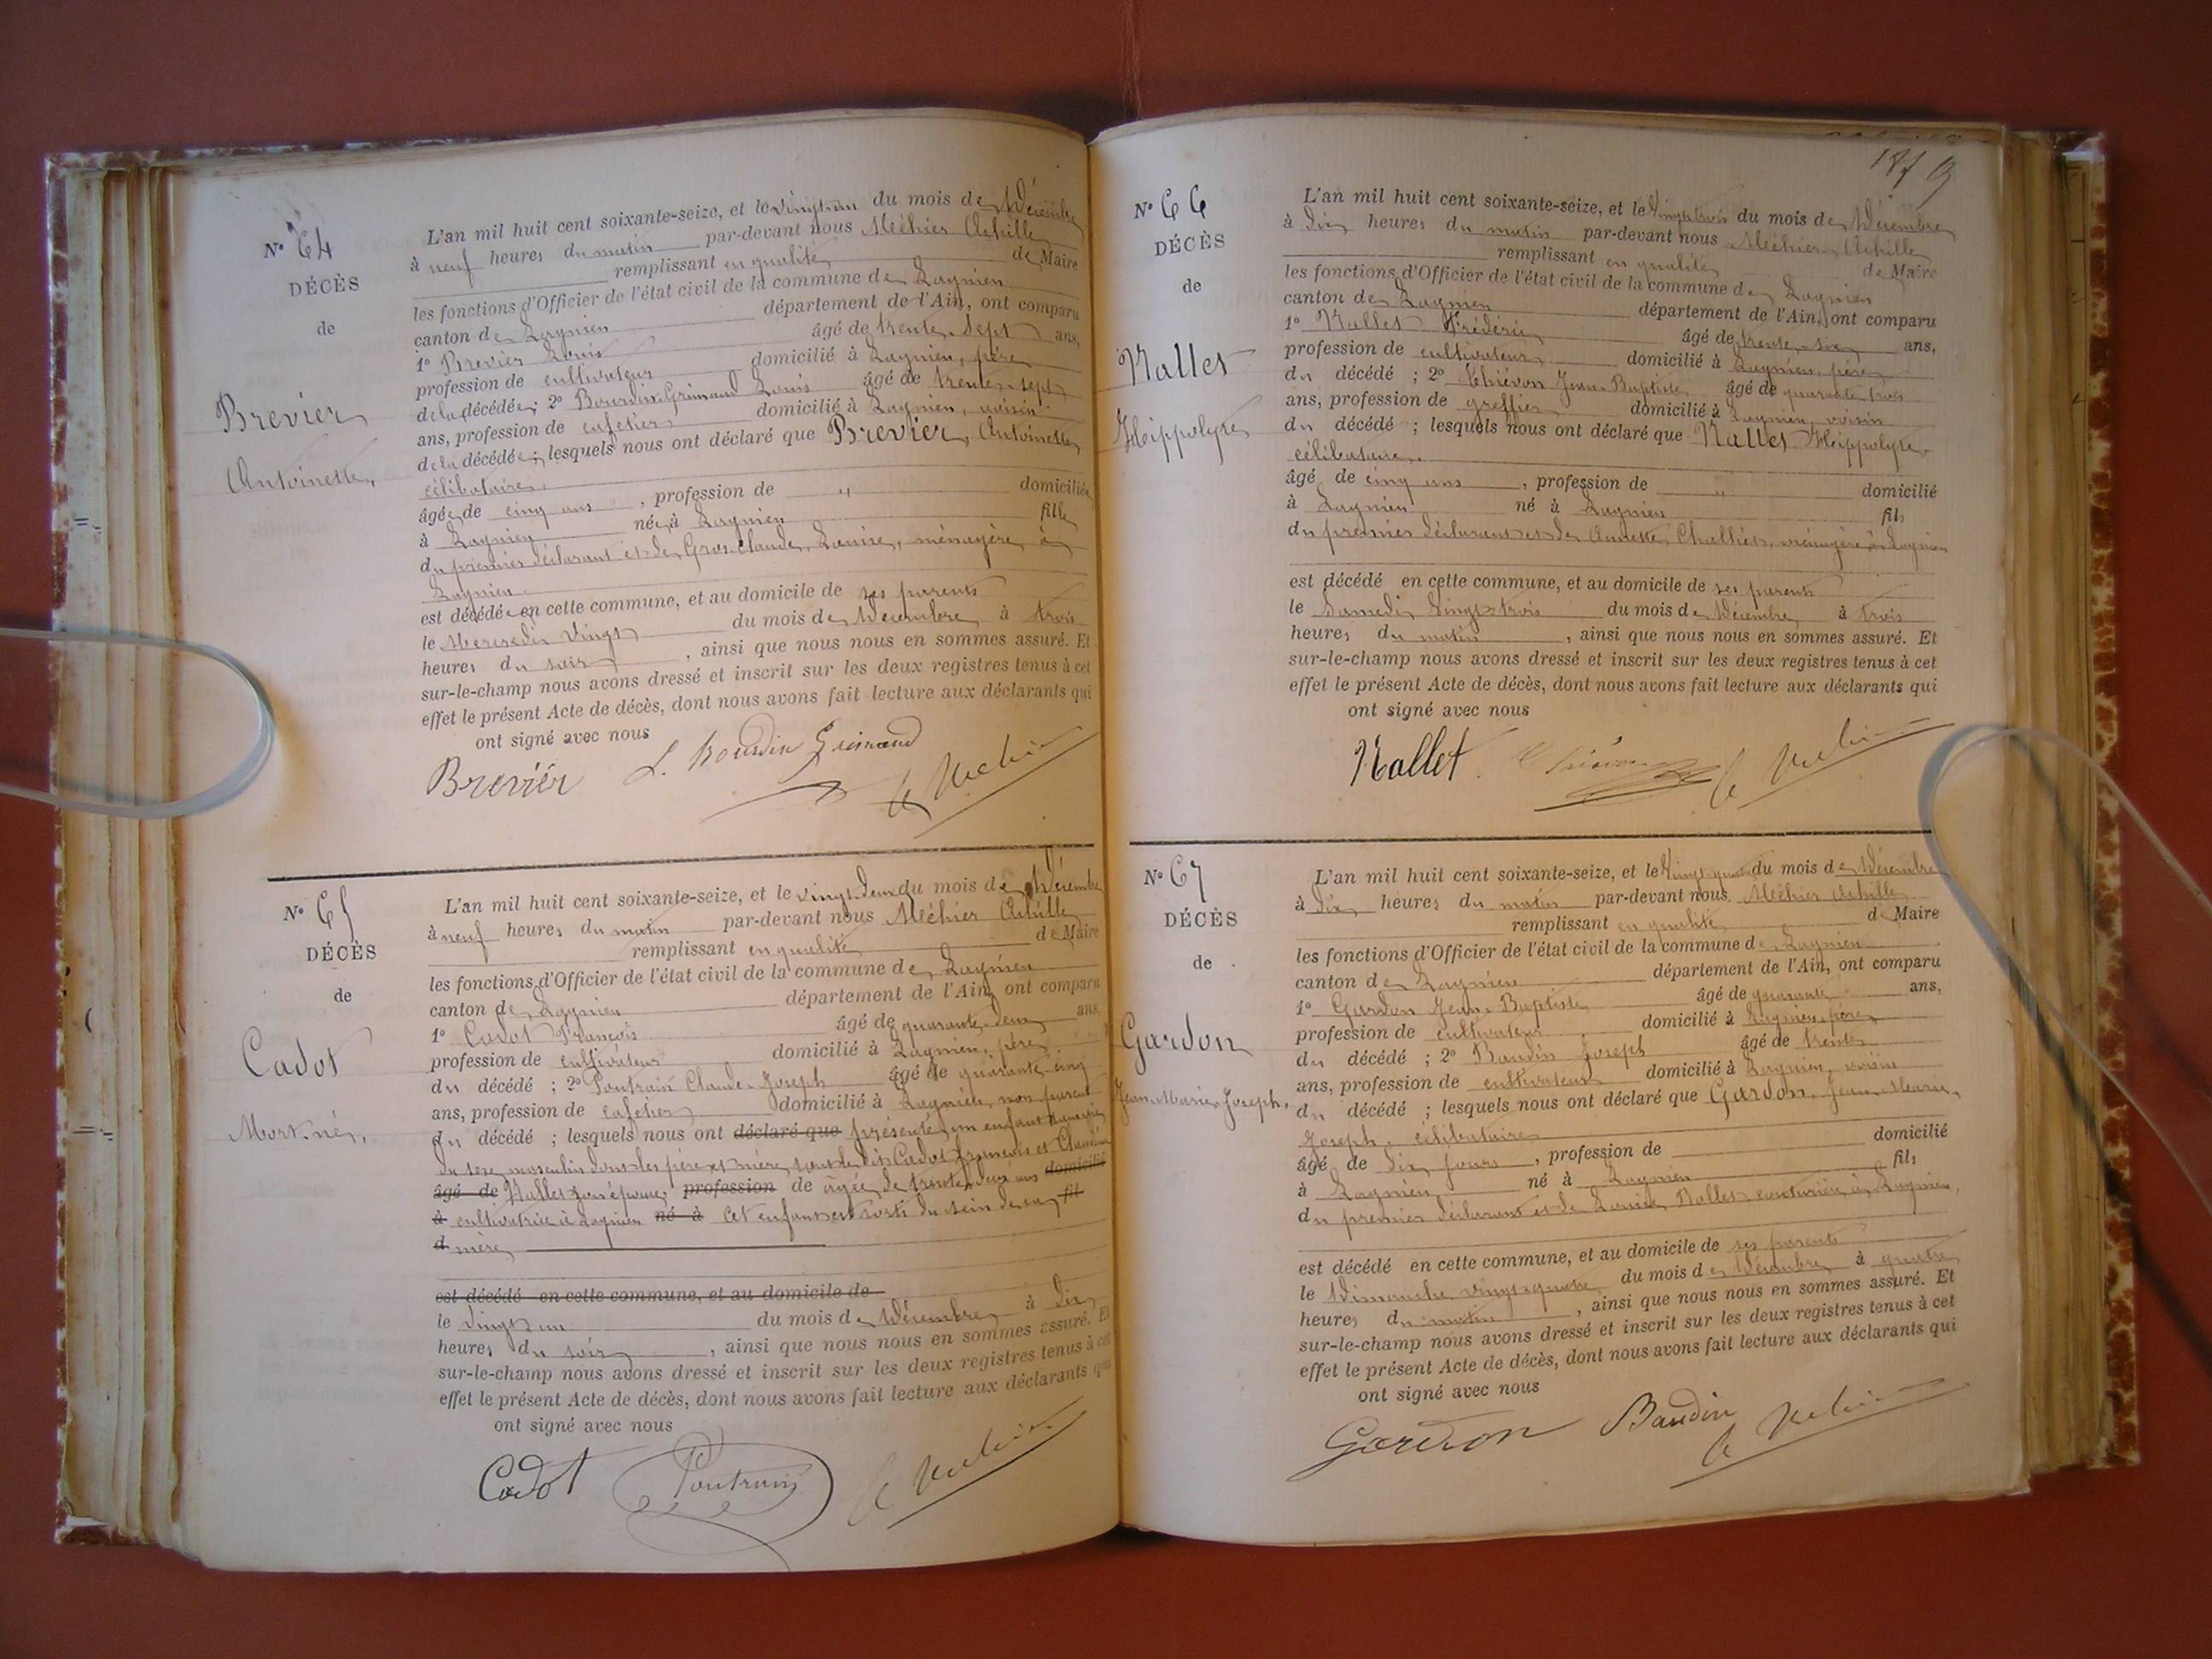 N° 64
DÉCÈS
de
Brevier
Antoinette,
L'an mil huit cent soixante-seize, et le vingt-un du mois de Décembre
à neuf heures du matin par-devant nous Méhier Achille
remplissant en qualité de Maire
les fonctions d'Officier de l'état civil de la commune de Lagnieu
canton de Lagnieu département de l'Ain, ont comparu
1° Brevier Louis âgé de trente-sept ans,
profession de cultivateur domicilié à Lagnieu, père
de la décédée; 2° Bourdin-Grimaud Louis âgé de trente-sept
ans, profession de cafetier domicilié à Lagnieu, voisin
de la décédée; lesquels nous ont déclaré que Brevier, Antoinette
célibataire,
âgée de cinq ans, profession de " domiciliée
à Lagnieu née à Lagnieu fille
du premier déclarant et de Gros-Claude, Louise, ménagère à
Lagnieu
est décédée en cette commune, et au domicile de ses parents
le Mercredi vingt du mois de Décembre à trois
heures du soir, ainsi que nous nous en sommes assuré. Et
sur-le-champ nous avons dressé et inscrit sur les deux registres tenus à cet
effet le présent Acte de décès, dont nous avons fait lecture aux déclarants qui
ont signé avec nous
Brevier L. Bourdin Grimaud A Mehier
N° 65
DÉCÈS
de
Cadot
Mort-né,
L'an mil huit cent soixante-seize, et le vingt-deux du mois de Décembre
à neuf heures du matin par-devant nous Méhier Achille
remplissant en qualité de Maire
les fonctions d'Officier de l'état civil de la commune de Lagnieu
canton de Lagnieu département de l'Ain, ont comparu
1° Cadot François âgé de quarante-deux ans,
profession de cultivateur domicilié à Lagnieu, père
du décédé ; 2° Poutrain Claude-Joseph âgé de quarante-cinq
ans, profession de cafetier domicilié à Lagnieu, non parent
du décédé ; lesquels nous ont déclaré que présenté un enfant
du sexe masculin dont les père et mère sont le dit Cadot François et Claudine
âgé de Nallet son épouse profession de âgée de trente-deux ans domicilié
à cultivatrice à Lagnieu né à Cet enfant est sorti du sein de sa fil
d mère
est décédé en cette commune, et au domicile de
le vingt-un du mois de Décembre à dix
heures du soir, ainsi que nous nous en sommes assuré. Et
sur-le-champ nous avons dressé et inscrit sur les deux registres tenus à cet
effet le présent Acte de décès, dont nous avons fait lecture aux déclarants qui
ont signé avec nous
Cadot Poutrain A Mehier
N° 66
DÉCÈS
de
Nallet
Hippolyte
L'an mil huit cent soixante-seize, et le vingt-trois du mois de Décembre
à dix heures du matin par-devant nous Méhier, Achille
remplissant en qualité de Maire
les fonctions d'Officier de l'état civil de la commune de Lagnieu
canton de Lagnieu département de l'Ain, ont comparu
1° Nallet Frédéric âgé de trente-six ans,
profession de cultivateur domicilié à Lagnieu, père
du décédé ; 2° Thiévon Jean-Baptiste âgé de quarante-trois
ans, profession de greffier domicilié à Lagnieu, voisin
du décédé ; lesquels nous ont déclaré que Nallet Hippolyte
célibataire,
âgé de cinq ans, profession de " domicilié
à Lagnieu né à Lagnieu fils
du premier déclarant et de Annette Challiet, ménagère à Lagnieu
est décédé en cette commune, et au domicile de ses parents
le Samedi vingt-trois du mois de Décembre à trois
heures du matin, ainsi que nous nous en sommes assuré. Et
sur-le-champ nous avons dressé et inscrit sur les deux registres tenus à cet
effet le présent Acte de décès, dont nous avons fait lecture aux déclarants qui
ont signé avec nous
Nallet Thiévon A Mehier
N° 67
DÉCÈS
de
Gardon
Jean-Marie-Joseph,
L'an mil huit cent soixante-seize, et le vingt-quatre du mois de Décembre
à dix heures du matin par-devant nous Méhier Achille
remplissant en qualité de Maire
les fonctions d'Officier de l'état civil de la commune de Lagnieu
canton de Lagnieu département de l'Ain, ont comparu
1° Gardon Jean-Baptiste âgé de quarante ans,
profession de cultivateur domicilié à Lagnieu, père
du décédé ; 2° Baudin Joseph âgé de trente
ans, profession de cultivateur domicilié à Lagnieu, voisin
du décédé ; lesquels nous ont déclaré que Gardon, Jean-Marie,
Joseph, célibataire
âgé de dix jours, profession de domicilié
à Lagnieu né à Lagnieu fils
du premier déclarant et de Louise Nallet couturière à Lagnieu,
est décédé en cette commune, et au domicile de ses parents
le Dimanche vingt-quatre du mois de Décembre à quatre
heures du matin, ainsi que nous nous en sommes assuré. Et
sur-le-champ nous avons dressé et inscrit sur les deux registres tenus à cet
effet le présent Acte de décès, dont nous avons fait lecture aux déclarants qui
ont signé avec nous
Gardon Baudin A Mehier